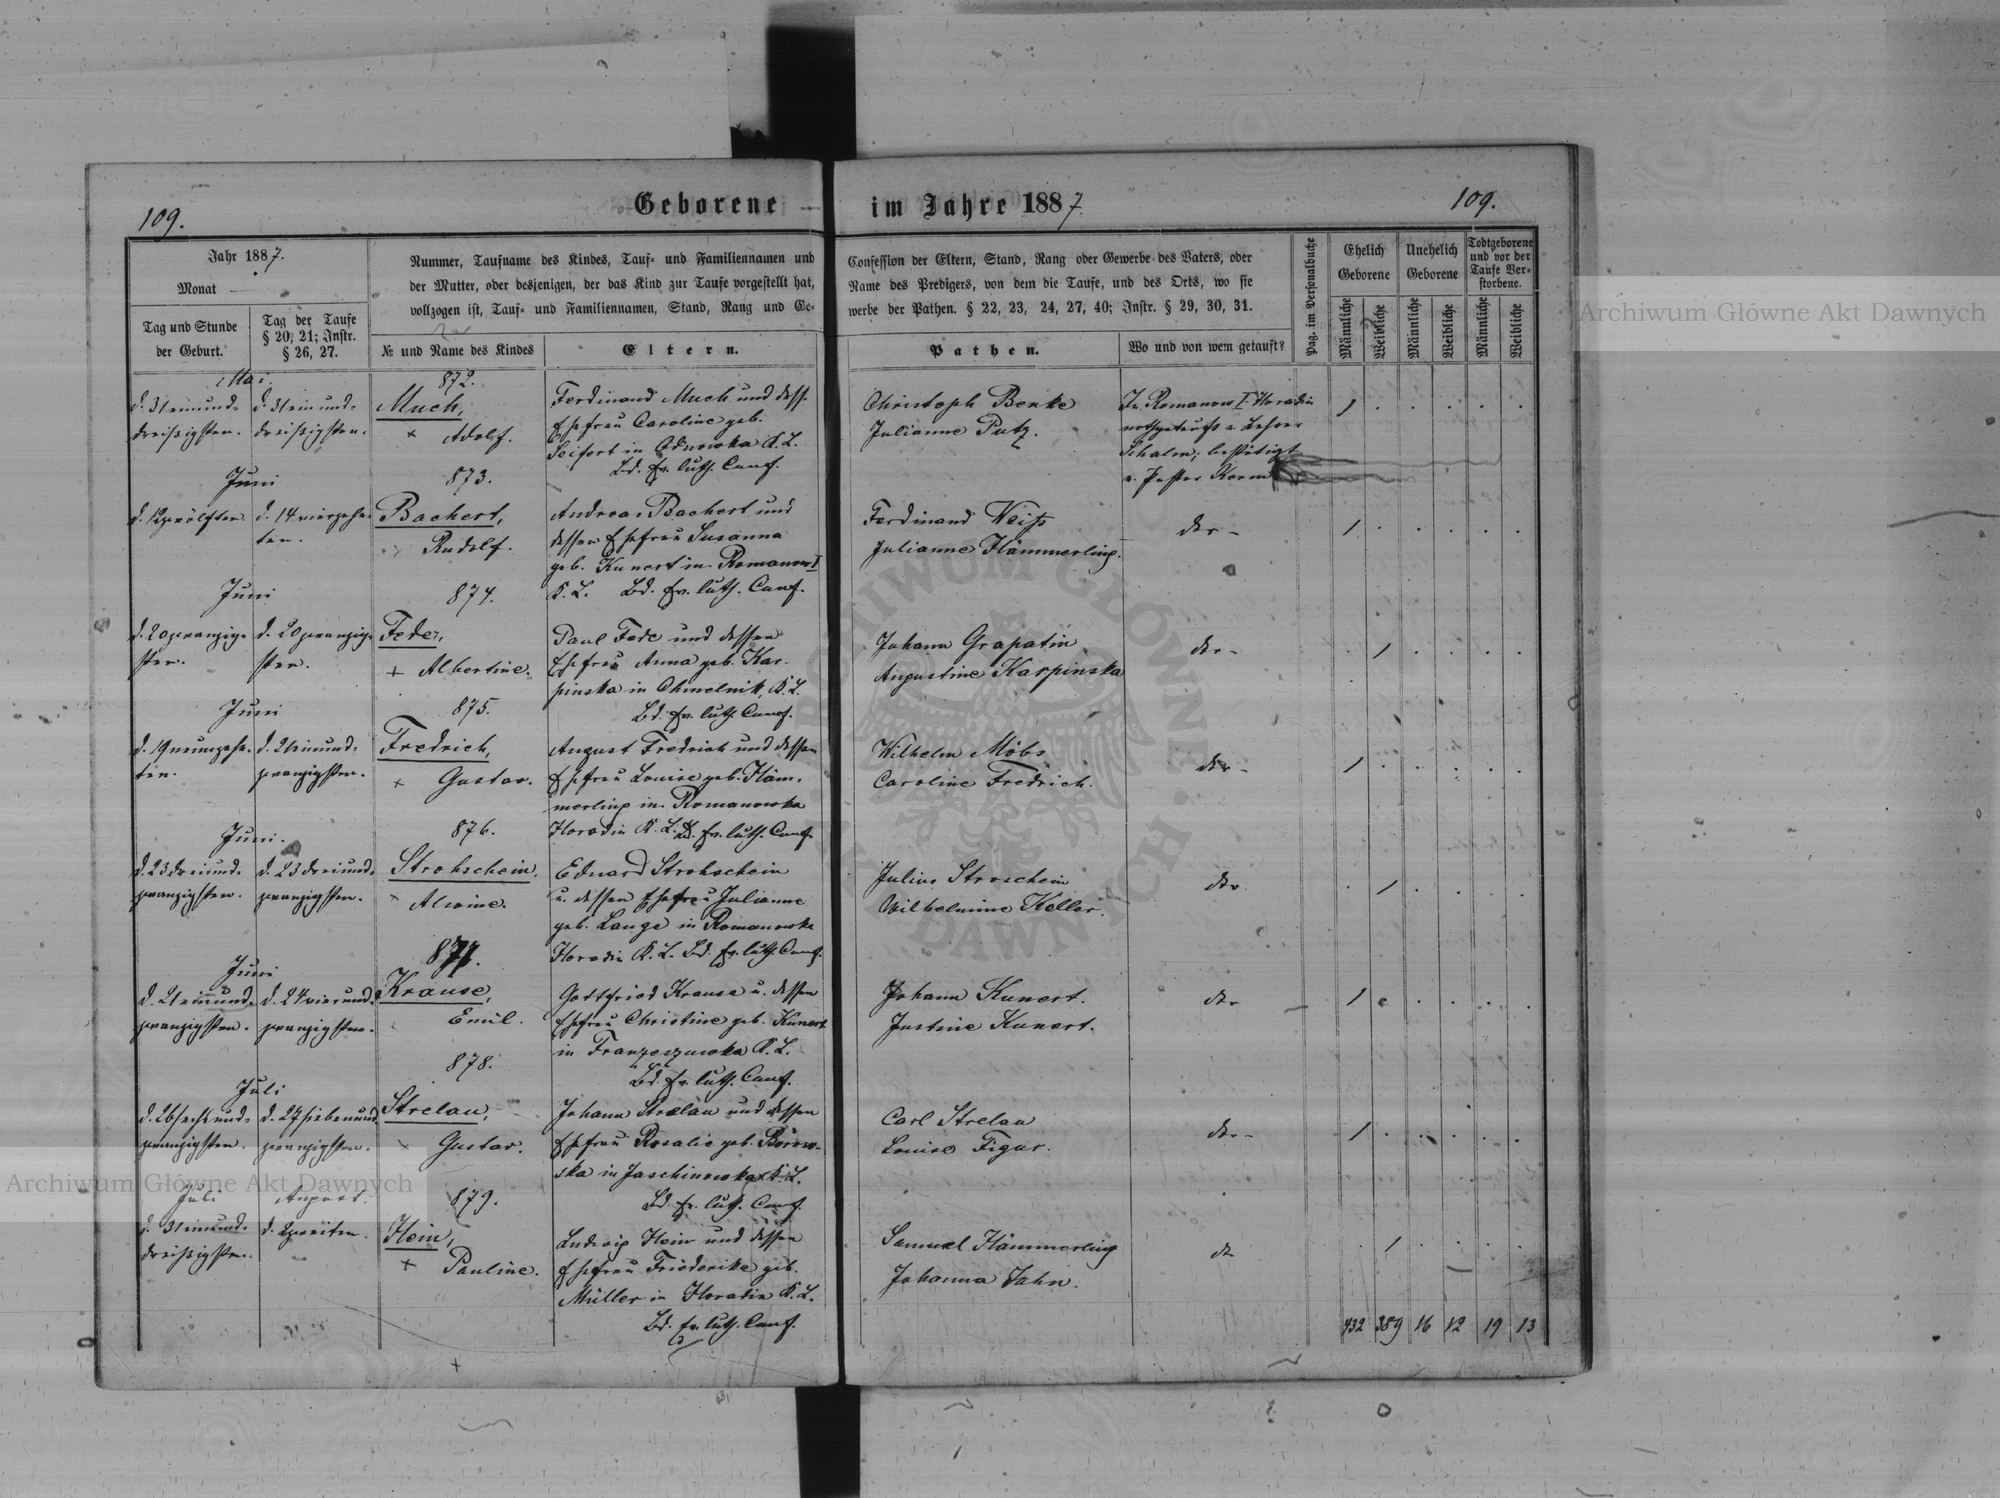 109.
Geborene
im Jahre 1887
109.
Jahr 1887.
Monat
Tag und Stunde
der Geburt.
Tag der Taufe
§ 20, 21; Instr.
§ 26, 27.
Nummer, Taufname des Kindes, Tauf- und Familiennamen und
der Mutter, oder desjenigen, der das Kind zur Taufe vorgestellt hat,
vollzogen ist, Tauf- und Familiennamen, Stand, Rang und Ge-
№ und Name des Kindes
Eltern.
Confession der Eltern, Stand, Rang oder Gewerbe des Vaters, oder
Name des Predigers, von dem die Taufe, und des Orts, wo sie
werbe der Pathen. § 22, 23, 24, 27, 40; Instr. § 29, 30, 31.
Pathen.
Wo und von wem getauft?
Pag. im Personalbuche
Ehelich
Geborene
Unehelich
Geborene
Todtgeborene
und vor der
Taufe Ver-
storbene.
Männliche
Weibliche
Männliche
Weibliche
Männliche
Weibliche
Mai.
d. 31 einund-
dreißigsten.
d. 31 einund-
dreißigsten.
872.
Much,
+ Adolf.
Ferdinand Much und dess.
Ehefrau Caroline geb.
Seifert in K. L.
Bd. ev. luth. Conf.
Christoph Benke
Julianne Putz.
In Romanow I Horadin
nothgetauft v. Lehrer
Schalm; bestätigt
v. Pastor Kerm
1 . . . . .
Juni
d. 12 zwölften
d. 14 vierzehn-
ten.
873.
Bachert,
Rudolf.
Andreas Bachert und
dessen Ehefrau Susanna
geb. Kunert in Romanow I
K. L. Bd. ev. luth. Conf.
Ferdinand Weiß
Julianne Hämmerling.
der -
1 . . . . .
Juni
d. 20 zwanzig-
sten.
d. 20 zwanzig-
sten.
874.
Feder,
+ Albertine.
Paul Fede und dessen
Ehefrau Anna geb. Kar-
pinska in Chmelnik, K. L.
Bd. ev. luth. Conf.
Johann Grapatin
Augustine Karpinska
der -
. 1 . . . .
Juni
d. 19 neunzehn-
ten.
d. 21 einund-
zwanzigsten.
875.
Fredrich,
+ Gustav.
August Fredrich und dessen
Ehefrau Louise geb. Häm-
merling in Romanowka
Horodin K. L. Bd. ev. luth. Conf.
Wilhelm Möbs
Caroline Fredrich.
der -
1 . . . . .
Juni.
d. 23 dreiund-
zwanzigsten.
d. 23 dreiund-
zwanzigsten.
876.
Strohschein.
Alwine.
Eduard Strohschein
u. dessen Ehefrau Julianne
geb. Lange in Romanowka
Horodin K. L. Bd. ev. luth. Conf.
Julius Stroschein
Wilhelmine Keller.
der
. 1 . . . .
Juni
d. 21 einund-
zwanzigsten.
d. 24 vierund-
zwanzigsten.
877.
Krause,
Emil.
Gottfried Krause u. dessen
Ehefrau Christine geb. Kunert
in K. L.
Bd. ev. luth. Conf.
Johann Kunert.
Justine Kunert.
der
1 . . . . .
Juli
d. 26 sechsund-
zwanzigsten.
d. 27 siebenund-
zwanzigsten.
878.
Strelau,
+ Gustav.
Johann Strelau und dessen
Ehefrau Rosalie geb. Borow-
ska in Jaschinowka K. L.
Bd. ev. luth. Conf.
Carl Strelau
Louise Figur.
der -
1 . . . . .
Juli
August.
d. 31 einund-
dreißigsten.
d. 2 zweiten.
879.
Hein,
+ Pauline.
Ludwig Hein und dessen
Ehefrau Friederike geb.
Müller in Horadin K. L.
Bd. ev. luth. Conf.
Samuel Hämmerling
Johanna Jahn.
der
. 1 . . . .
432 389 16 12 19 13
Archiwum Główne Akt Dawnych
Archiwum Główne Akt Dawnych
ARCHIWUM GŁÓWNE
DAWNYCH